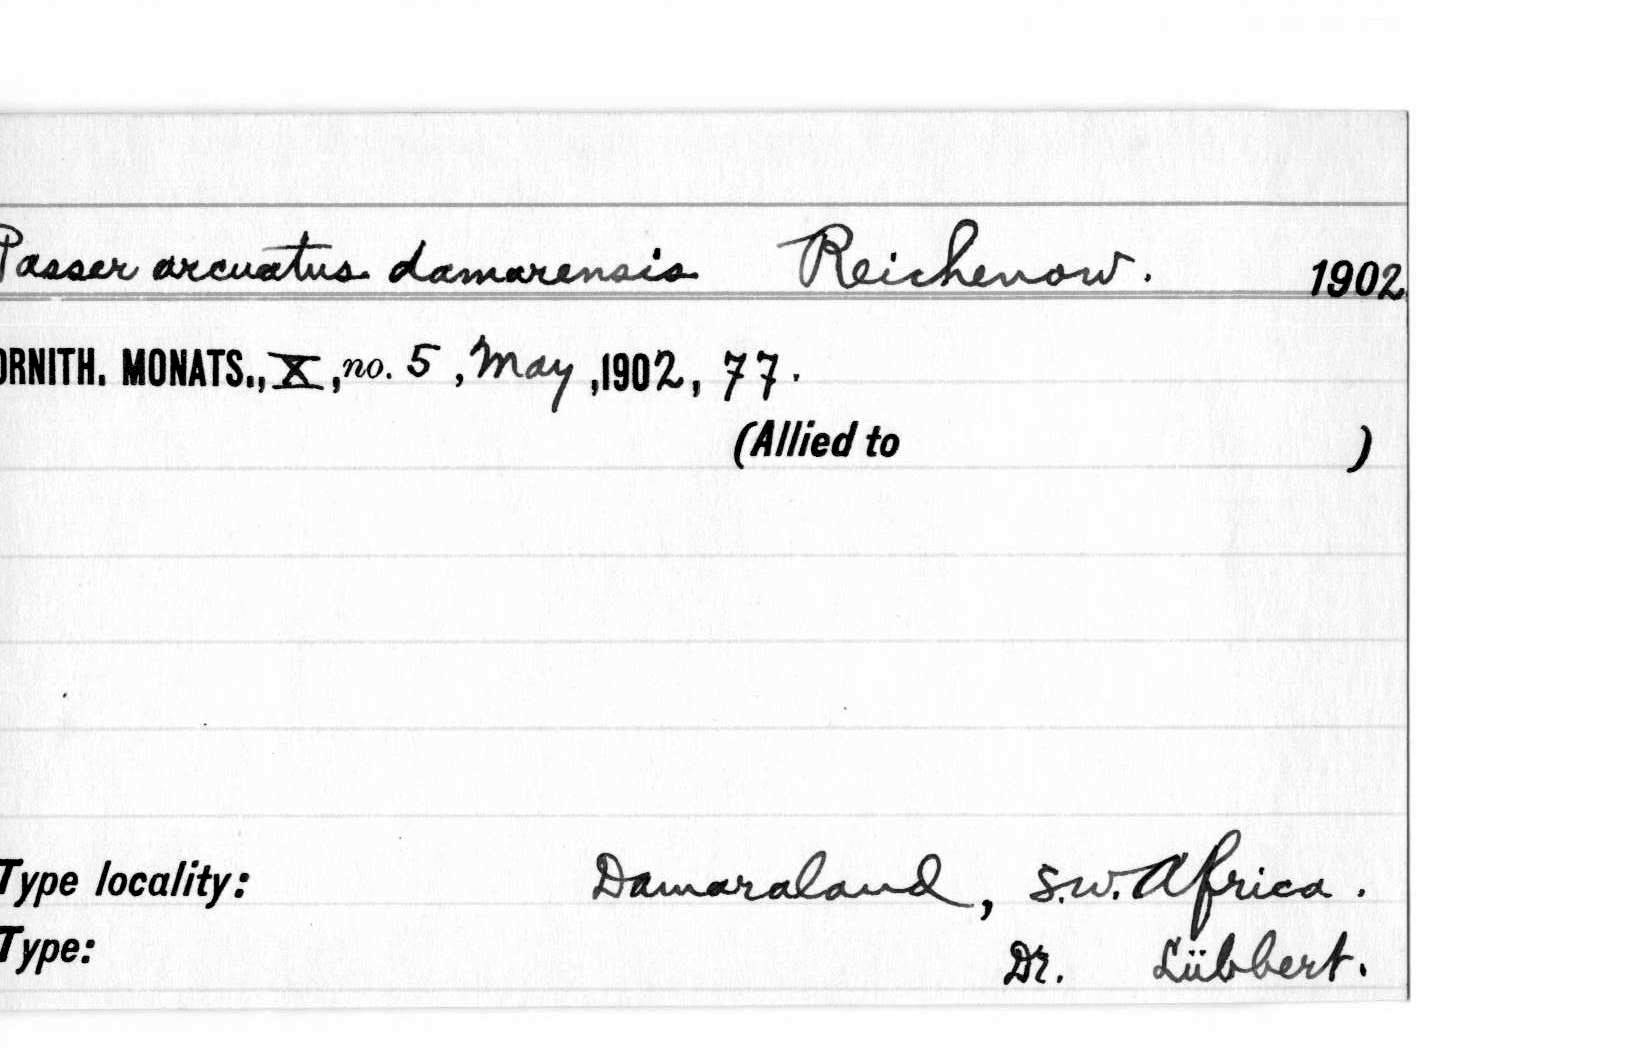 Passer arcuatus damarensis Reichenow. 1902
ORNITH. MONATS., X, no. 5, May, 1902, 77.
(Allied to )
Type locality: Damaraland, S.W. Africa.
Type: Dr. Lübbert.